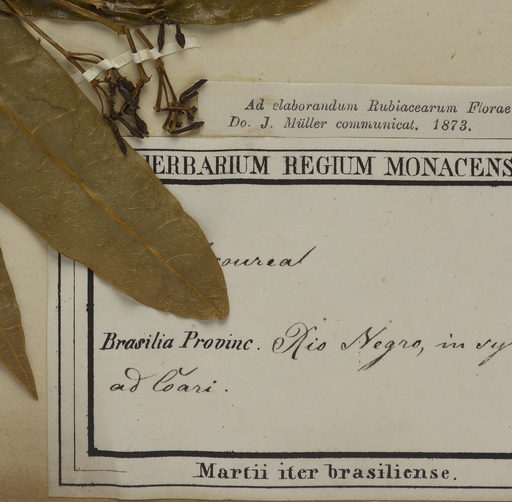 Ad elaborandum Rubiacearum Florae
Do. J. Müller communicat. 1873.
HERBARIUM REGIUM MONACENS
coureal
Brasilia Provinc. Rio Negro, in sy
ad Coari.
Martii iter brasiliense.